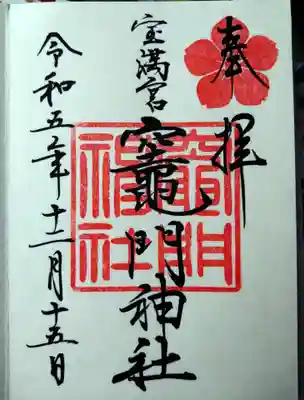 奉拝
宝満宮
竈門神社
令和五年十一月十五日
竈門
神社